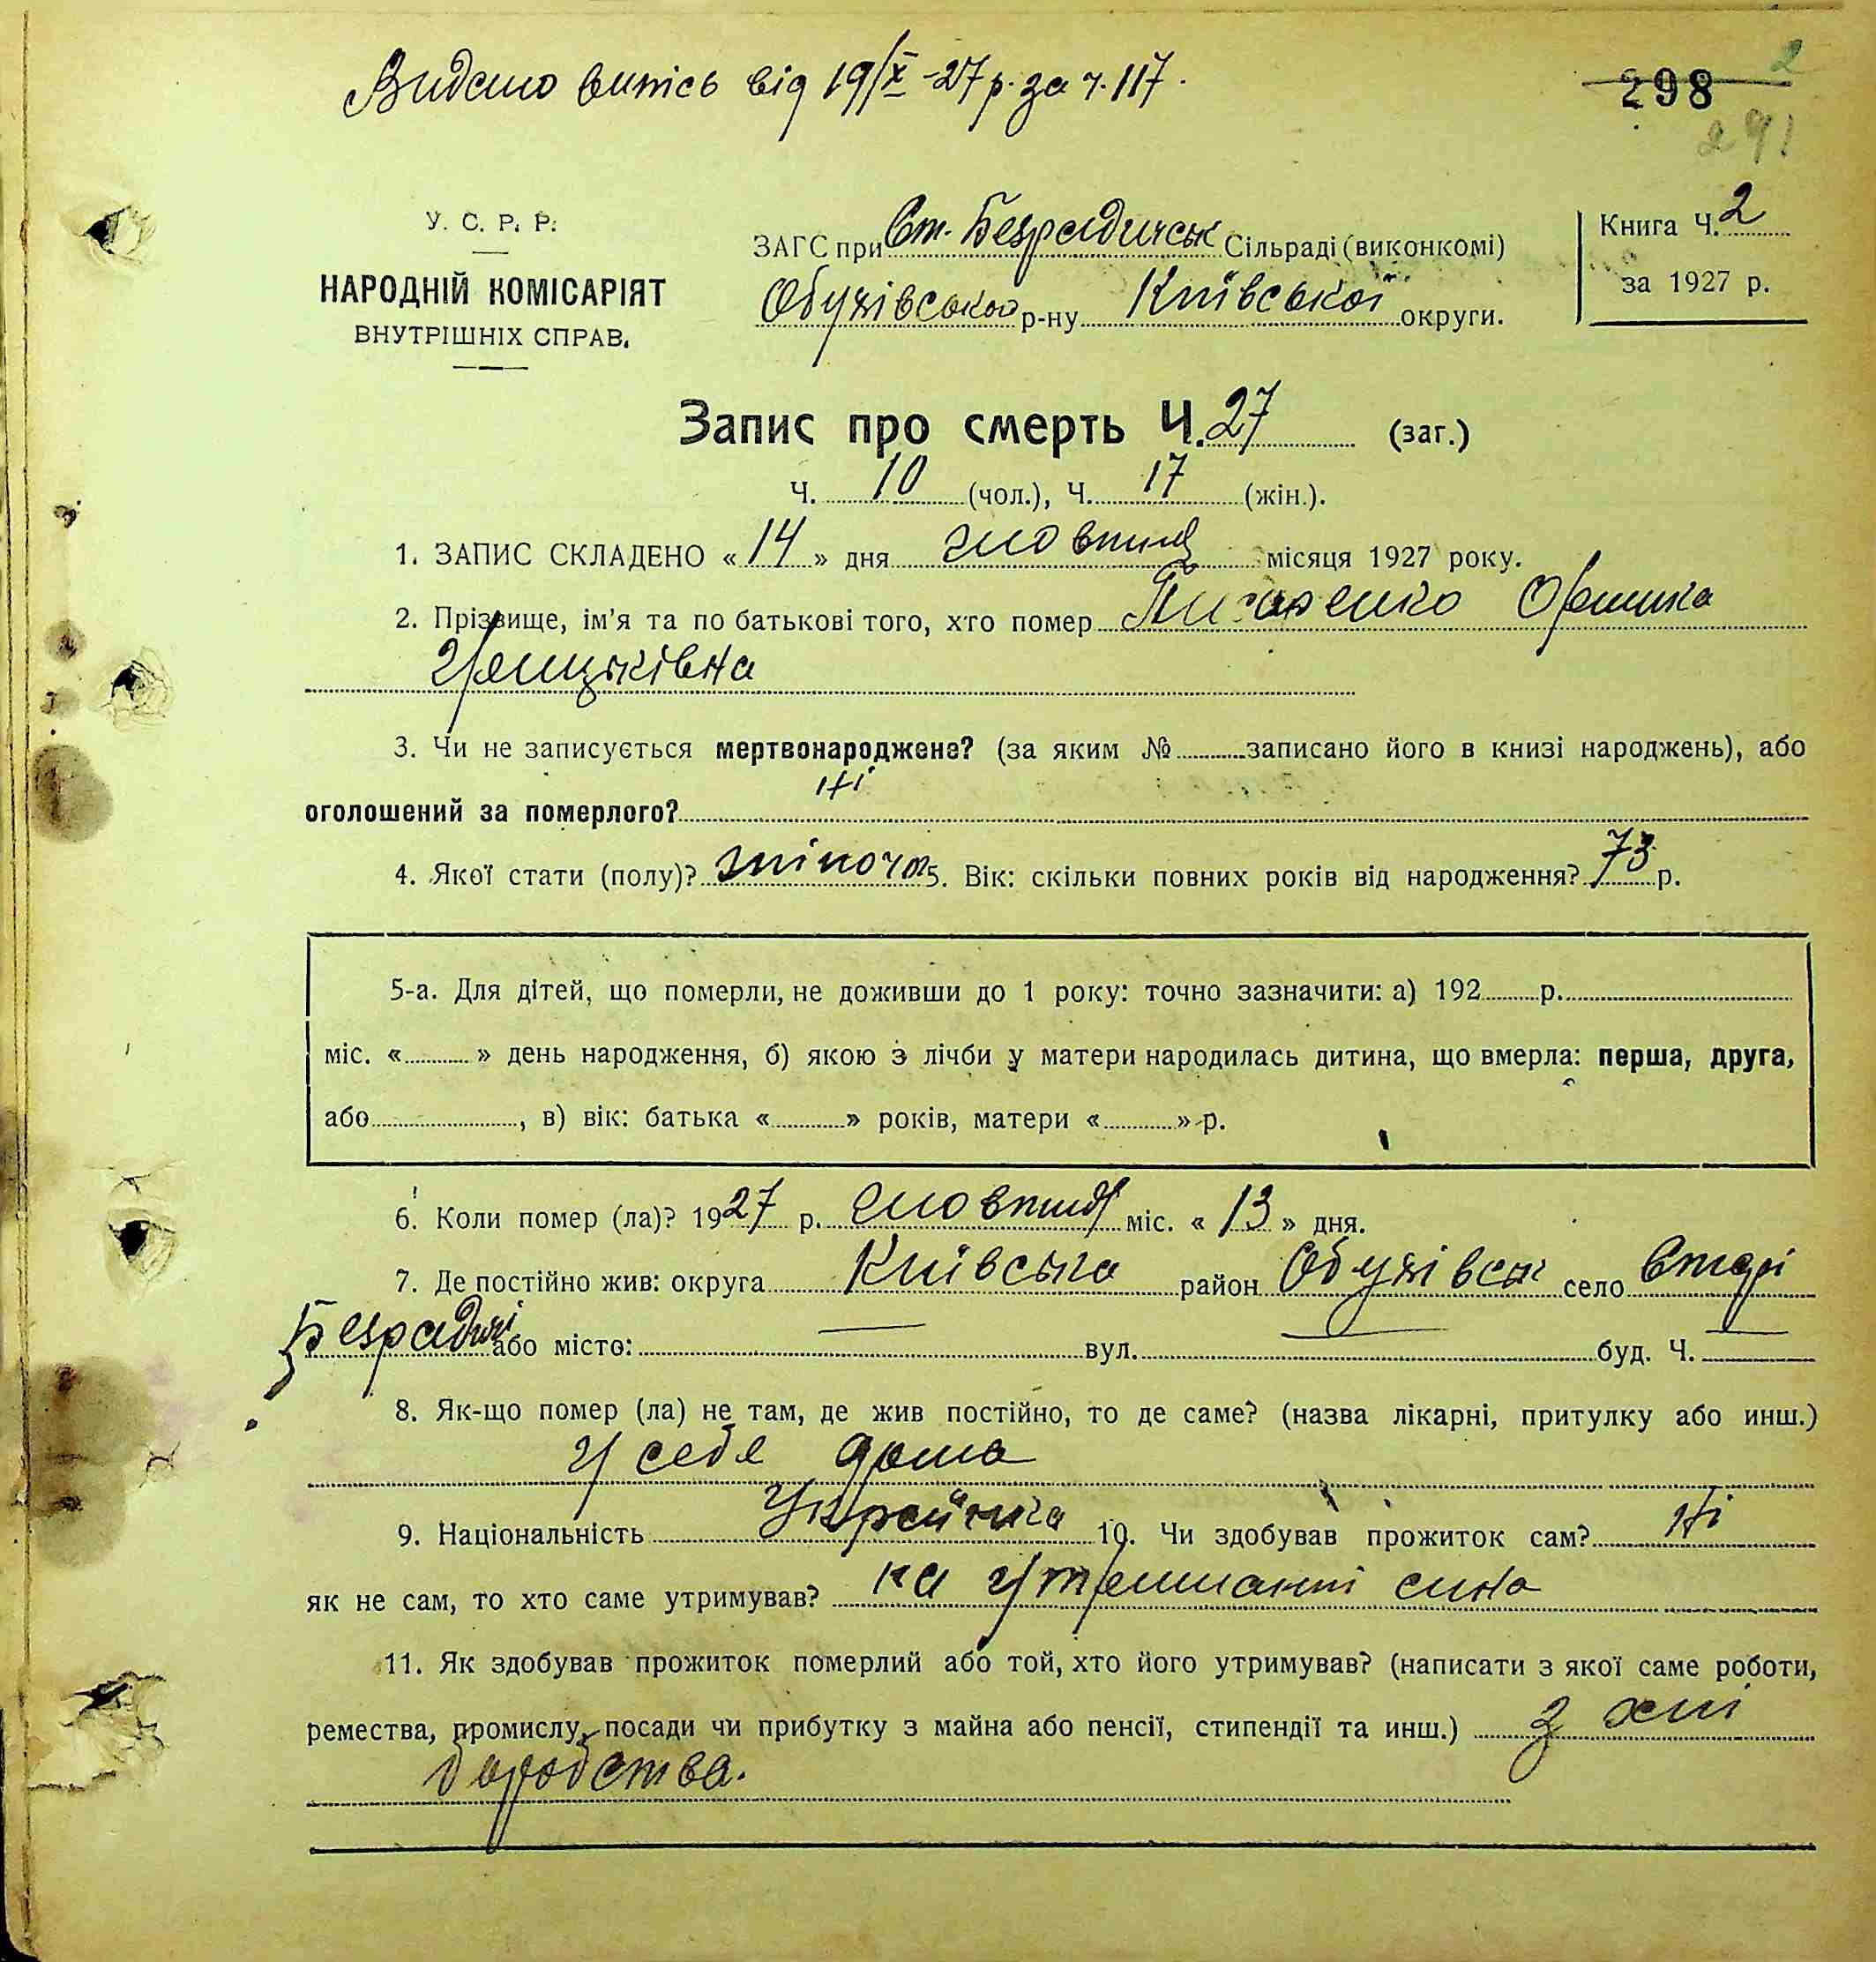 Видано випісь від 19/X-27 р. за ч. 117.
298 2
291
У. С. Р. Р.
НАРОДНІЙ КОМІСАРІЯТ
ВНУТРІШНІХ СПРАВ.
ЗАГС при Ст. Безрадичськ Сільраді (виконкомі)
Обухівського р-ну Київської округи.
Книга Ч. 2
за 1927 р.
Запис про смерть Ч. 27 (заг.)
Ч. 10 (чол.), Ч. 17 (жін.).
1. ЗАПИС СКЛАДЕНО « 14 » дня жовтня місяця 1927 року.
2. Прізвище, ім'я та по батькові того, хто помер
3. Чи не записується мертвонароджене? (за яким № записано його в книзі народжень), або
ні
оголошений за померлого?
4. Якої стати (полу)? жіноча 5. Вік: скільки повних років від народження? 73 р.
5-а. Для дітей, що померли, не доживши до 1 року: точно зазначити: а) 192 р.
міс. « » день народження, б) якою з лічби у матери народилась дитина, що вмерла: перша, друга,
або , в) вік: батька « » років, матери « » р.
6. Коли помер (ла)? 1927 р. жовтня міс. « 13 » дня.
7. Де постійно жив: округа Київська район Обухівськ село Старі
Безрадичі або місто: — вул. — буд. Ч. —
8. Як-що помер (ла) не там, де жив постійно, то де саме? (назва лікарні, притулку або инш.)
у себе дома
9. Національність Українка 10. Чи здобував прожиток сам? Ні
як не сам, то хто саме утримував? на утриманні сина
11. Як здобував прожиток померлий або той, хто його утримував? (написати з якої саме роботи,
ремества, промислу, посади чи прибутку з майна або пенсії, стипендії та инш.) з хлі
боробства.